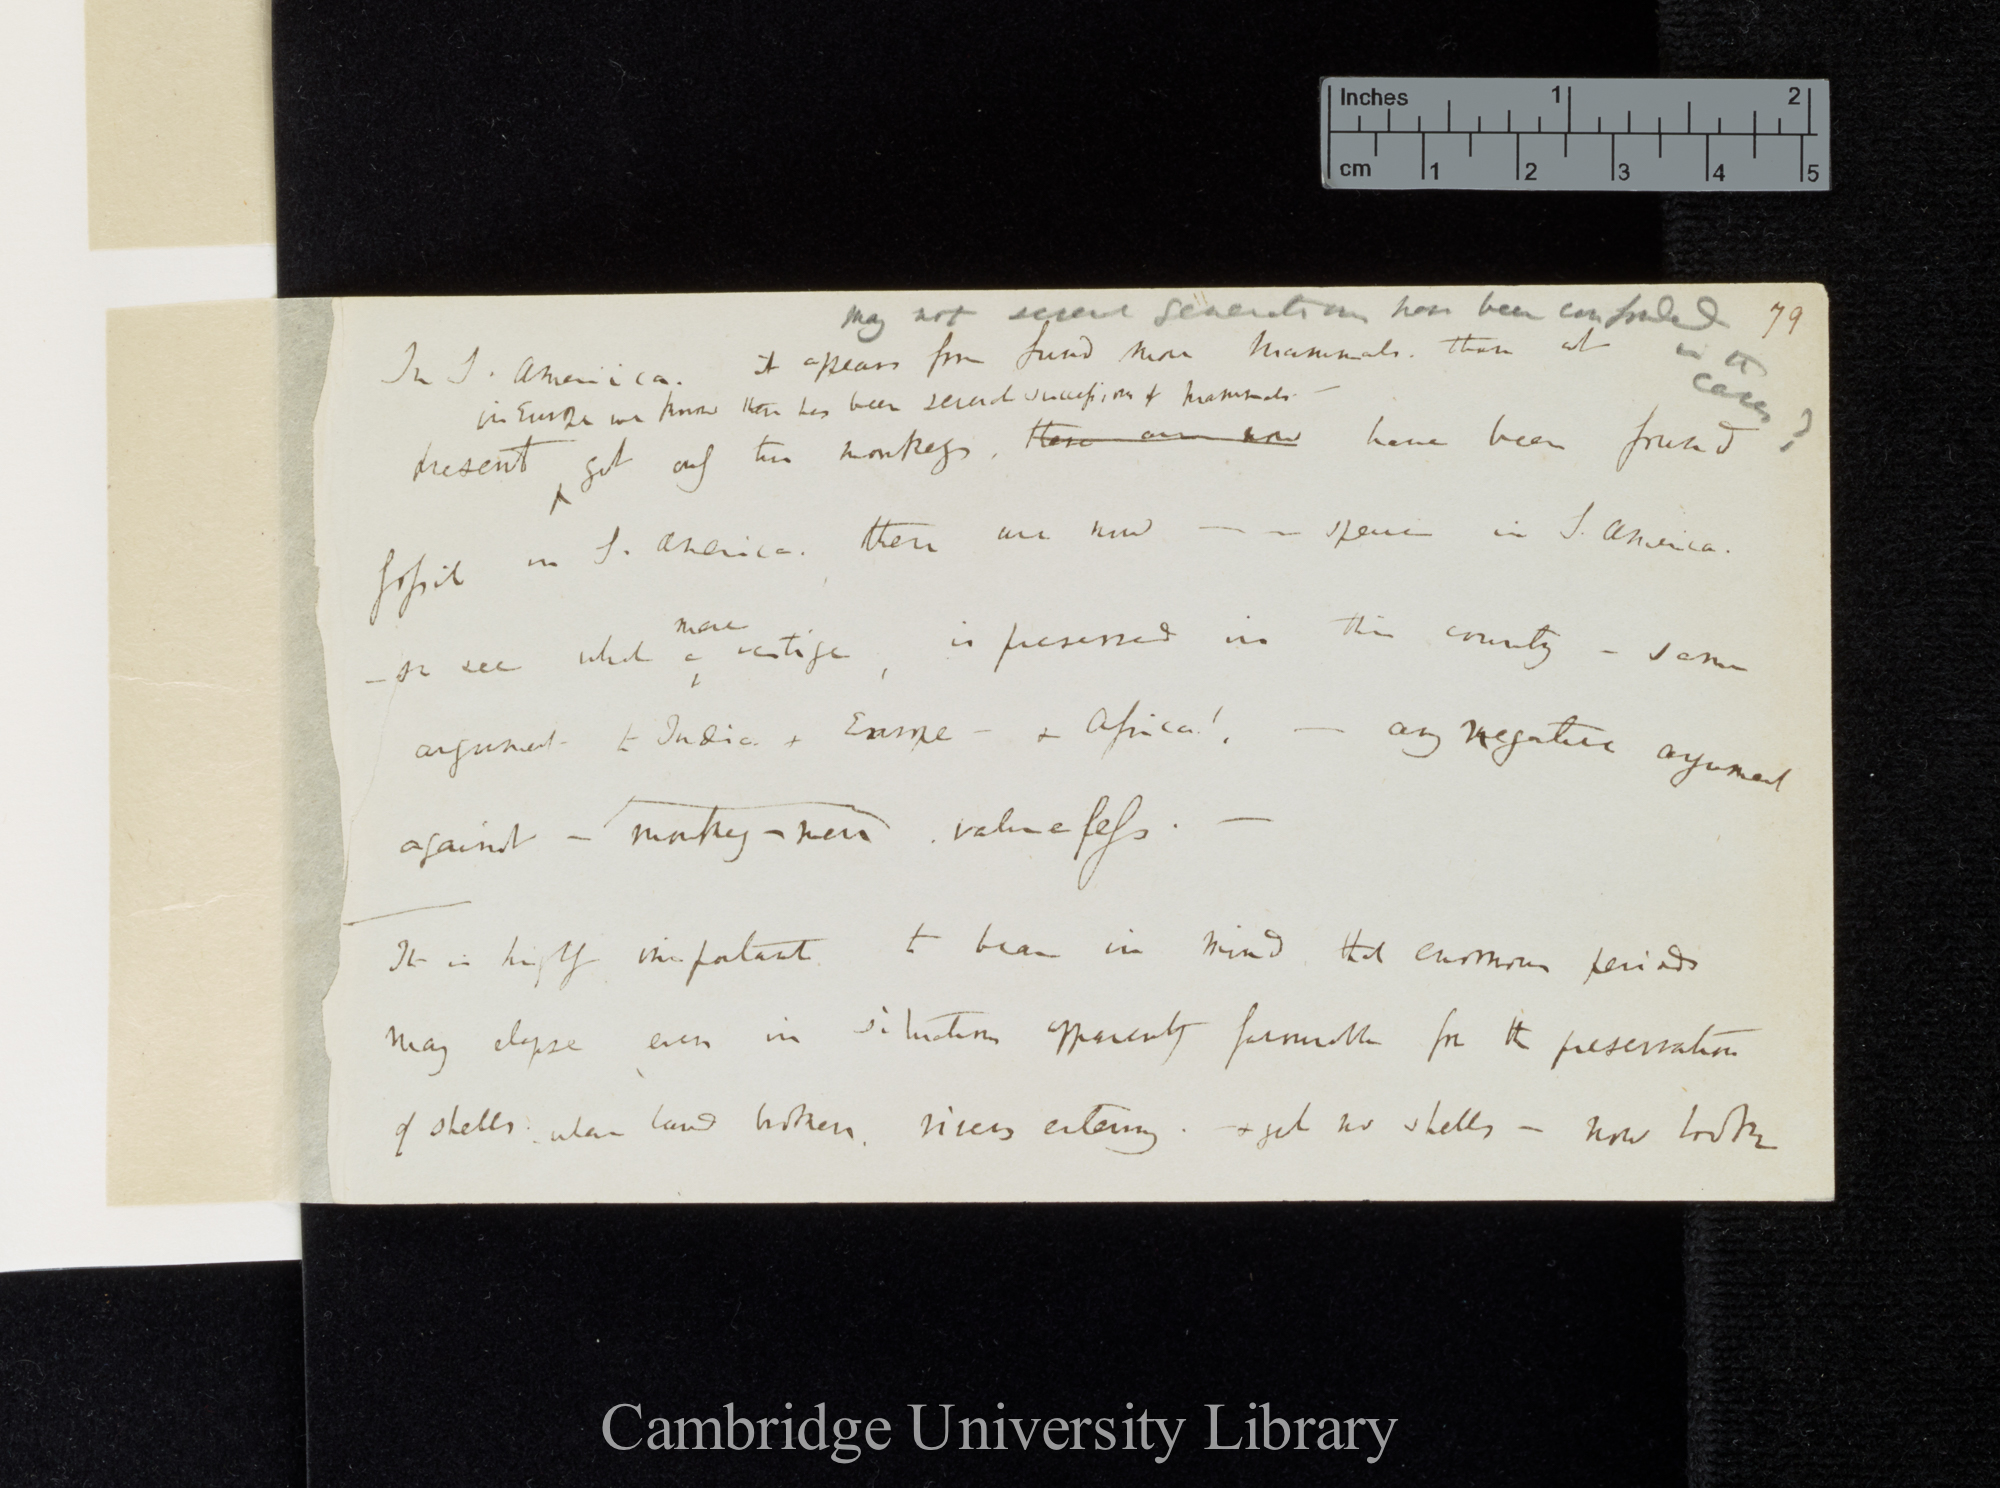 Inches 1 2
cm 1 2 3 4 5
may not several generations have been confounded
in the
cases?
79
In S. America. it appears from found more Mammals. than at
in Europe we know there has been several successions of Mammals. —
present yet only two monkeys, there are now have been found
fossil in S. America. there are now — — species in S. America.
— so see what a mere vestige, is preserved in this country — same
argument to India & Europe — & Africa!, — any negative argument
against — monkey-men . valueless. —
It is highly important to bear in mind that enormous periods
may elapse even in situations apparently favourable for the preservation
of shells. when land broken, rivers entering. — & yet no shells — now look
Cambridge University Library